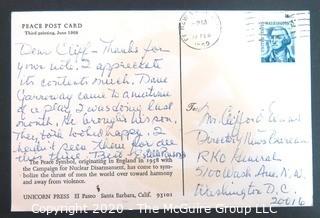 PEACE POST CARD
Third printing, June 1968
Dear Cliff - Thanks for
your note. I appreciate
its contents much. Dave
Garroway came to a matinee
of a play I was doing last
month. He brought his son.
They both looked happy. I
hadn't seen them for
this time. Best
The Peace Symbol, originating in England in 1958 with
the Campaign for Nuclear Disarmament, has come to sym-
bolize the thrust of men the world over toward harmony
and away from violence.
UNICORN PRESS El Paseo Santa Barbara, Calif. 93101
PM
FEB
1969
WASHINGTON
Mr. Clifford Evans
Director News Bureau
RKO General
5100 Wash. Ave. N.W.
Washington D.C.
20016
Copyright 2020 - The McGuffey Group, LLC